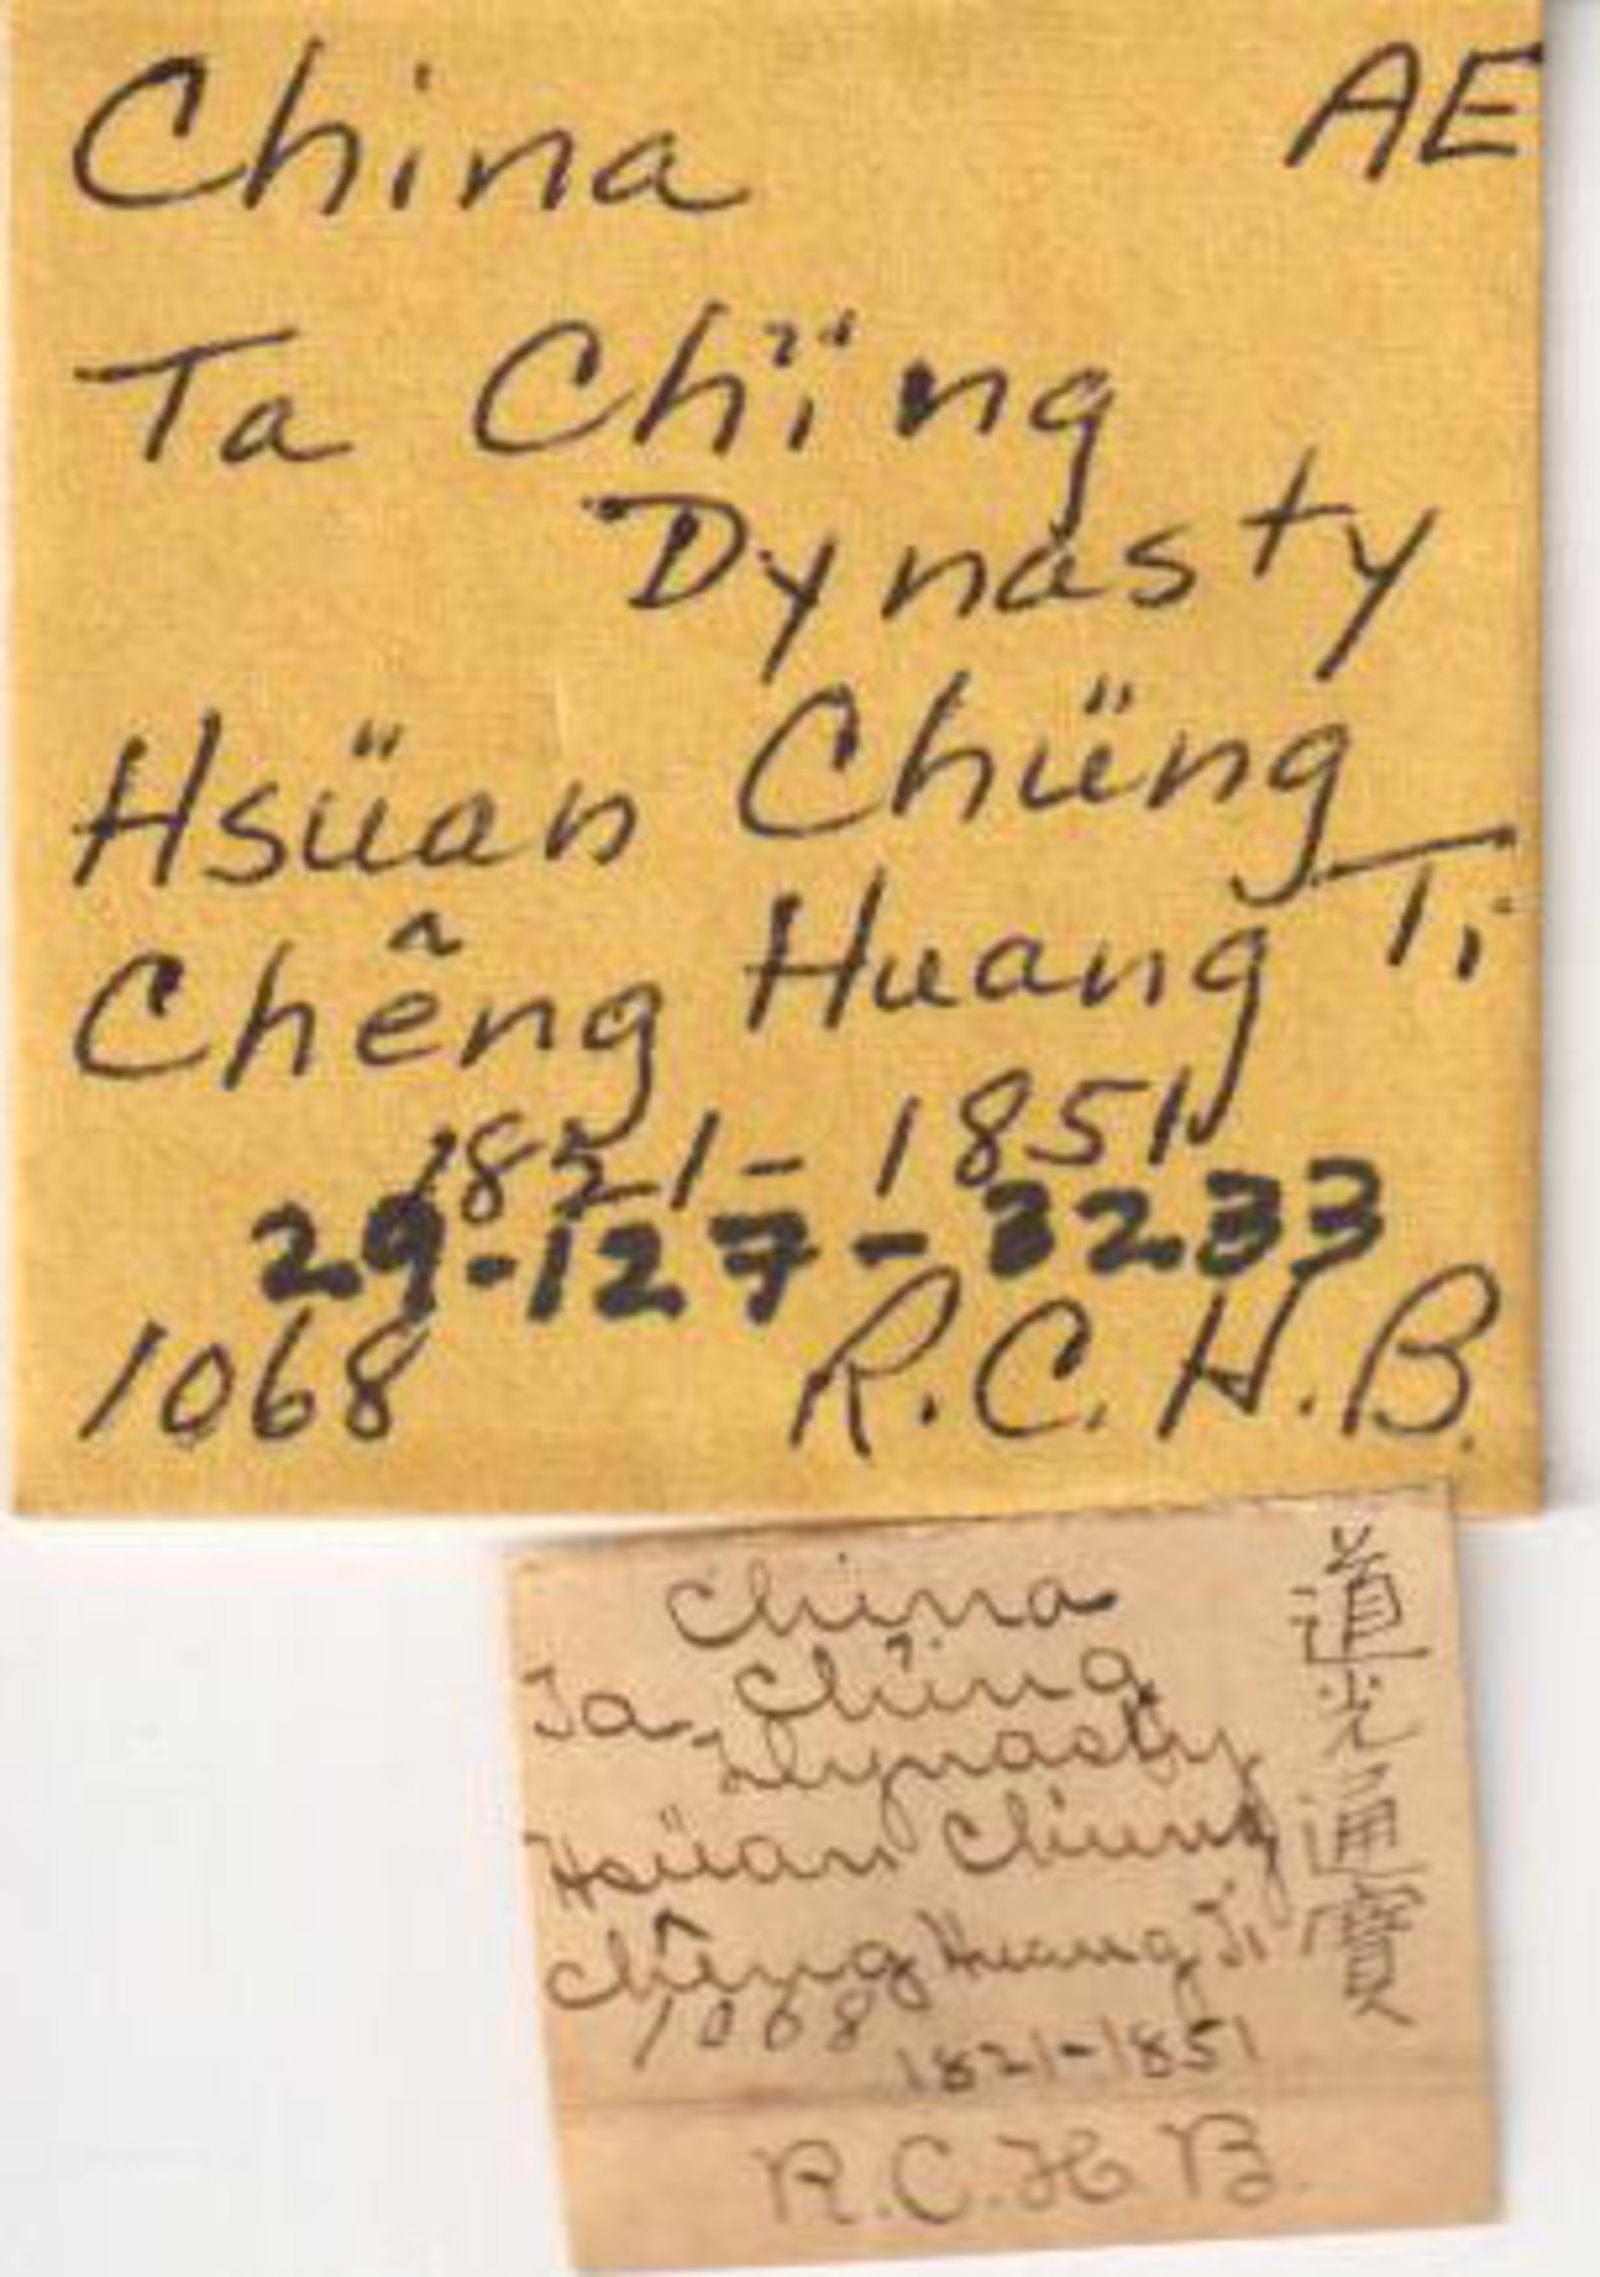 China AE
Ta Ch'ing
Dynasty
Hsüan Chüng
Chêng Huang Ti
1821-1851
29-127-3233
1068 R.C.H.B.
China
Ta Ch'ing
Dynasty
Hsüan Chüng
Chêng Huang Ti
1068
1821-1851
R.C.H.B.
道光通寳